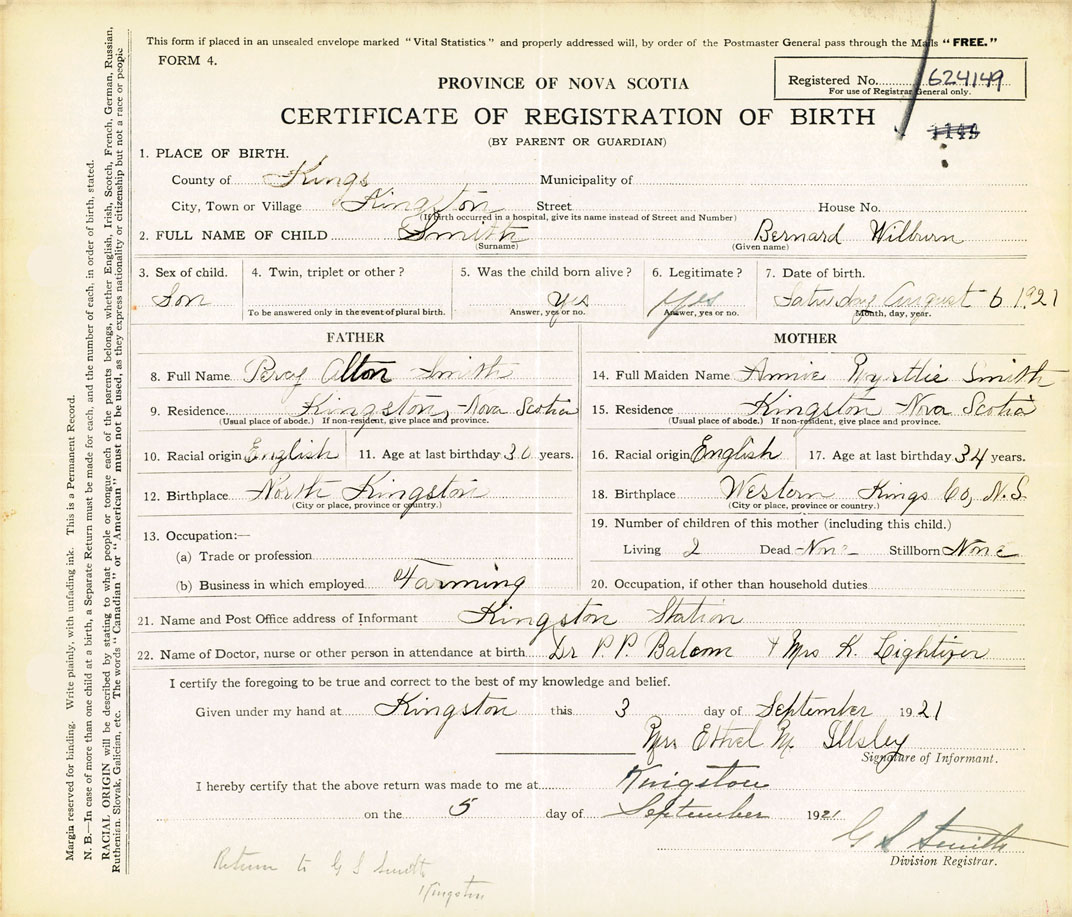 This form if placed in an unsealed envelope marked "Vital Statistics" and properly addressed will, by order of the Postmaster General pass through the Mails "FREE."
FORM 4.
Registered No. 624149
For use of Registrar General only.
PROVINCE OF NOVA SCOTIA
CERTIFICATE OF REGISTRATION OF BIRTH
(BY PARENT OR GUARDIAN)
1. PLACE OF BIRTH.
County of Kings Municipality of
City, Town or Village Kingston Street House No.
(If birth occurred in a hospital, give its name instead of Street and Number)
2. FULL NAME OF CHILD Smith Bernard Wilburn
(Surname) (Given name)
3. Sex of child. 4. Twin, triplet or other? 5. Was the child born alive? 6. Legitimate? 7. Date of birth.
Son Yes Yes Saturday August 6 1921
To be answered only in the event of plural birth. Answer, yes or no. Answer, yes or no. Month, day, year.
FATHER
8. Full Name Percy Alton Smith
9. Residence Kingston, Nova Scotia
(Usual place of abode.) If non-resident, give place and province.
10. Racial origin English 11. Age at last birthday 30 years.
12. Birthplace North Kingston
(City or place, province or country.)
13. Occupation:—
(a) Trade or profession
(b) Business in which employed Farming
MOTHER
14. Full Maiden Name Annie Myrttie Smith
15. Residence Kingston Nova Scotia
(Usual place of abode.) If non-resident, give place and province.
16. Racial origin English 17. Age at last birthday 34 years.
18. Birthplace Western Kings Co, N.S.
(City or place, province or country.)
19. Number of children of this mother (including this child.)
Living 2 Dead None Stillborn None
20. Occupation, if other than household duties
21. Name and Post Office address of Informant Kingston Station
22. Name of Doctor, nurse or other person in attendance at birth Dr P. P. Balcom & Mrs K. Lightizer
I certify the foregoing to be true and correct to the best of my knowledge and belief.
Given under my hand at Kingston this 3 day of September 1921
Mrs Ethel M. Illsley
Signature of Informant.
I hereby certify that the above return was made to me at Kingston
on the 5 day of September 1921
G S Smith
Division Registrar.
Return to G S Smith
Kingston
Margin reserved for binding. Write plainly, with unfading ink. This is a Permanent Record.
N. B.—In case of more than one child at a birth, a Separate Return must be made for each, and the number of each, in order of birth, stated.
RACIAL ORIGIN will be described by stating to what people or tongue each of the parents belongs, whether English, Irish, Scotch, French, German, Russian,
Ruthenian, Slovak, Galician, etc. The words "Canadian" or "American" must not be used, as they express nationality or citizenship but not a race or people